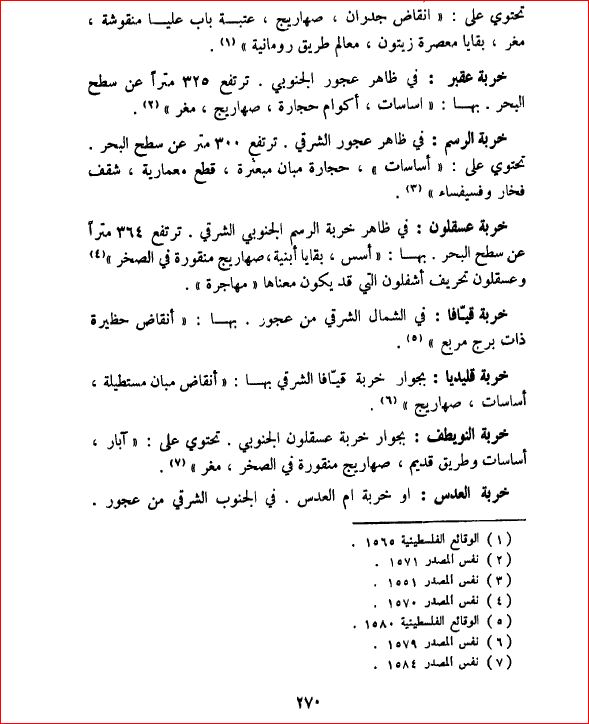 تحتوي على : « انقاض جدران ، صهاريج ، عتبـة باب عليـا منقوشة ،
مغر ، بقايا معصرة زيتون ، معالم طريق رومانية » (١) .
خربة عقبر : في ظاهر عجور الجنوبي . ترتفع ٣٢٥ متراً عن سطح
البحر . بهـا : « اساسات ، أكوام حجارة ، صهاريج ، مغر » (٢) .
خربة الرسم : في ظاهر عجور الشرقي . ترتفع ٣٠٠ متر عن سطح البحر .
تحتوي على : « أساسات » ، حجارة مبان مبعثرة ، قطع معمارية ، شقف
فخار وفسيفساء » (٣) .
خربة عسقلون : في ظاهر خربة الرسم الجنوبي الشرقي . ترتفع ٣٦٤ متراً
عن سطح البحر . بهـا : « أسس ، بقايا أبنية،صهاريج منقورة في الصخر »(٤)
وعسقلون تحريف أشفلون التي قد يكون معناها « مهاجرة » .
خربة قيـّافا : في الشمال الشرقي من عجور . بهـا : « أنقاض حظيرة
ذات برج مربع » (٥) .
خربة قليديا : بجوار خربة قيـّافا الشرقي بهـا : « أنقاض مبان مستطيلة ،
أساسات ، صهاريج » (٦) .
خربة النويطف : بجوار خربة عسقلون الجنوبي . تحتوي على : « آبار ،
أساسات وطريق قديم ، صهاريج منقورة في الصخر ، مغر » (٧) .
خربة العدس : او خربة ام العدس . في الجنوب الشرقي من عجور .
(١) الوقائع الفلسطينية ١٥٦٥ .
(٢) نفس المصدر ١٥٧١ .
(٣) نفس المصدر ١٥٥١ .
(٤) نفس المصدر ١٥٧٠ .
(٥) الوقائع الفلسطينية ١٥٨٠ .
(٦) نفس المصدر ١٥٧٩ .
(٧) نفس المصدر ١٥٨٤ .
٢٧٠